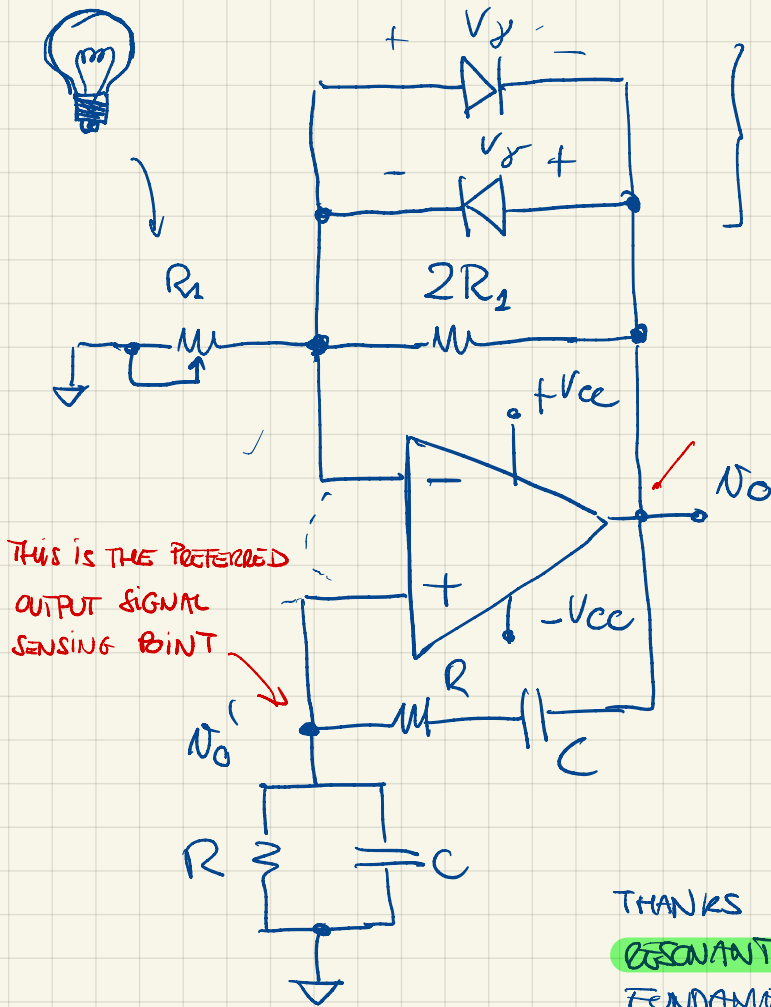 + Vγ -
- Vγ +
R1
2R1
+Vcc
-
vo
THIS IS THE PREFERRED
OUTPUT SIGNAL
SENSING POINT
+
-Vcc
R
vo'
C
R
C
THANKS
RESONANT
FUNDAM